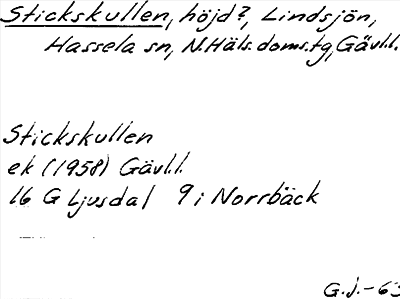 Stickskullen, höjd?, Lindsjön,
Hassela sn, N.Häls.doms.tg, Gävl.l.
Stickskullen
ek (1958) Gävl.l.
16 G Ljusdal 9 i Norrbäck
G.J.-63